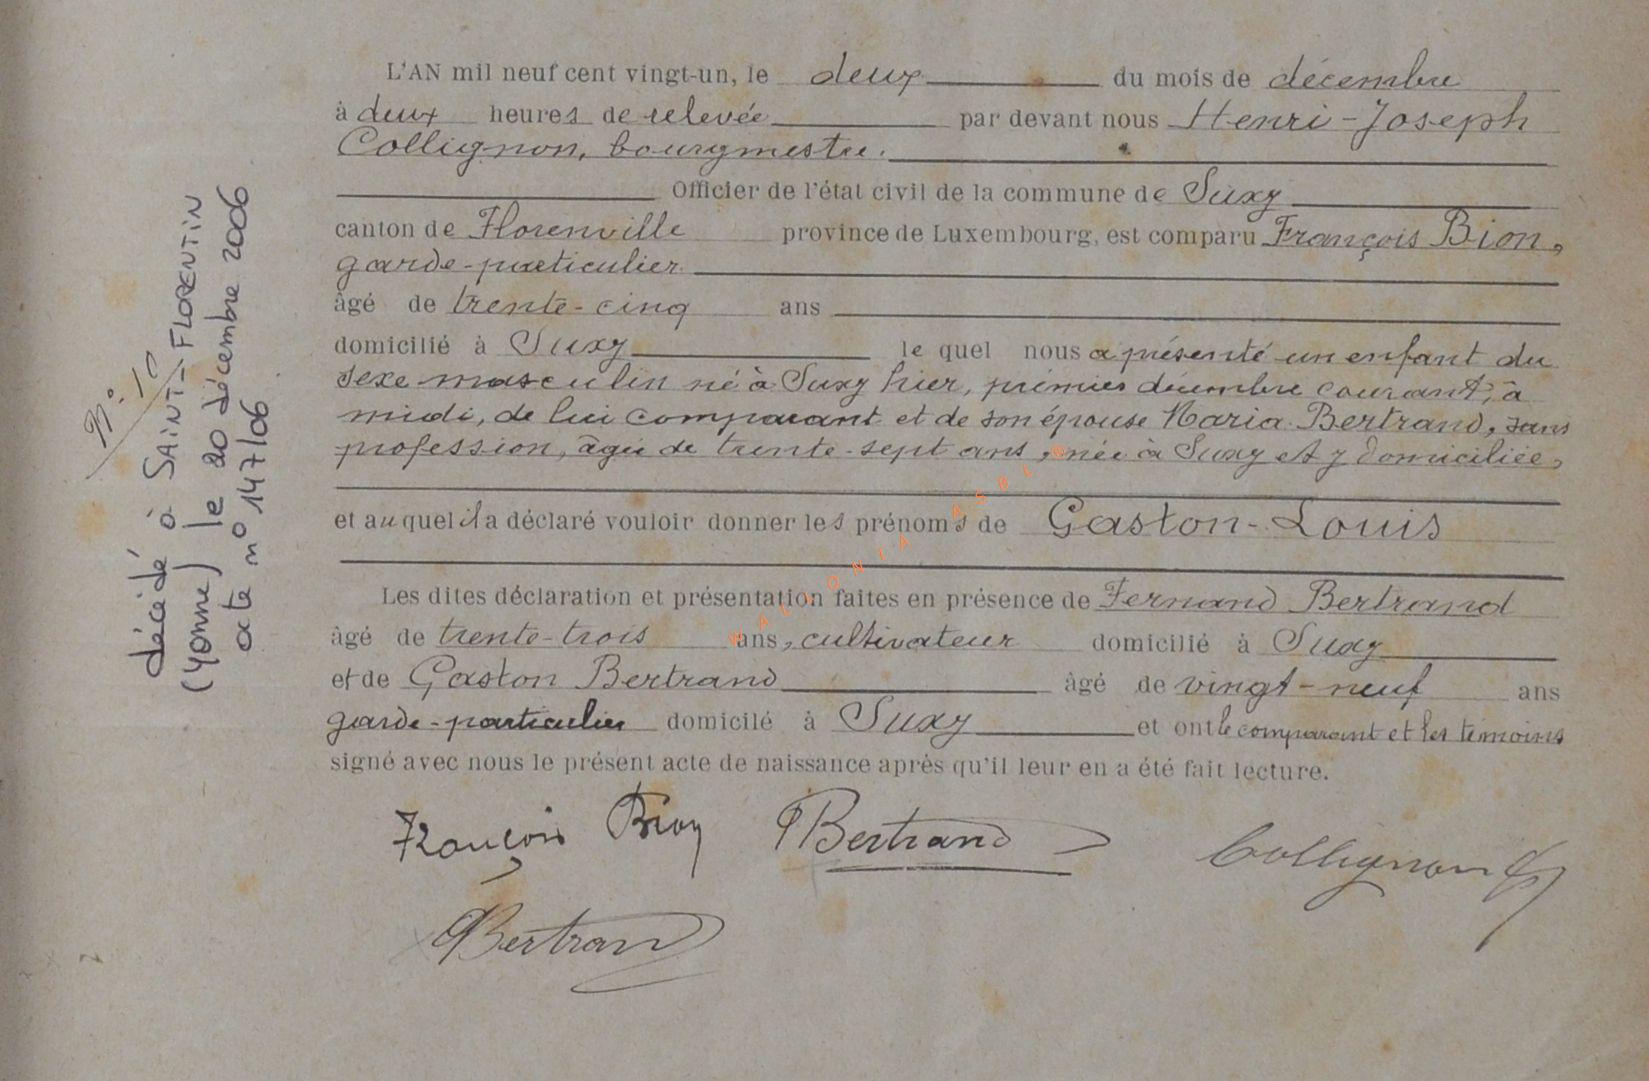 N° 10
décédé à SAINT-FLORENTIN
(Yonne) le 20 décembre 2006
acte n° 147/06
L'AN mil neuf cent vingt-un, le deux du mois de décembre
à deux heures de relevée par devant nous Henri-Joseph
Collignon, bourgmestre.
Officier de l'état civil de la commune de Suxy
canton de Florenville province de Luxembourg, est comparu François Bion,
garde-particulier
âgé de trente-cinq ans
domicilié à Suxy le quel nous a présenté un enfant du
sexe masculin né à Suxy hier, premier décembre courant, à
midi, de lui comparant et de son épouse Maria Bertrand, sans
profession, âgée de trente-sept ans, née à Suxy et y domiciliée,
et auquel il a déclaré vouloir donner les prénoms de Gaston-Louis
Les dites déclaration et présentation faites en présence de Fernand Bertrand
âgé de trente-trois ans, cultivateur domicilié à Suxy
et de Gaston Bertrand âgé de vingt-neuf ans
garde-particulier domicilé à Suxy et ont le comparant et les témoins
signé avec nous le présent acte de naissance après qu'il leur en a été fait lecture.
François Bion Bertrand Collignon
Bertrand
WALLONIA ASBL ©